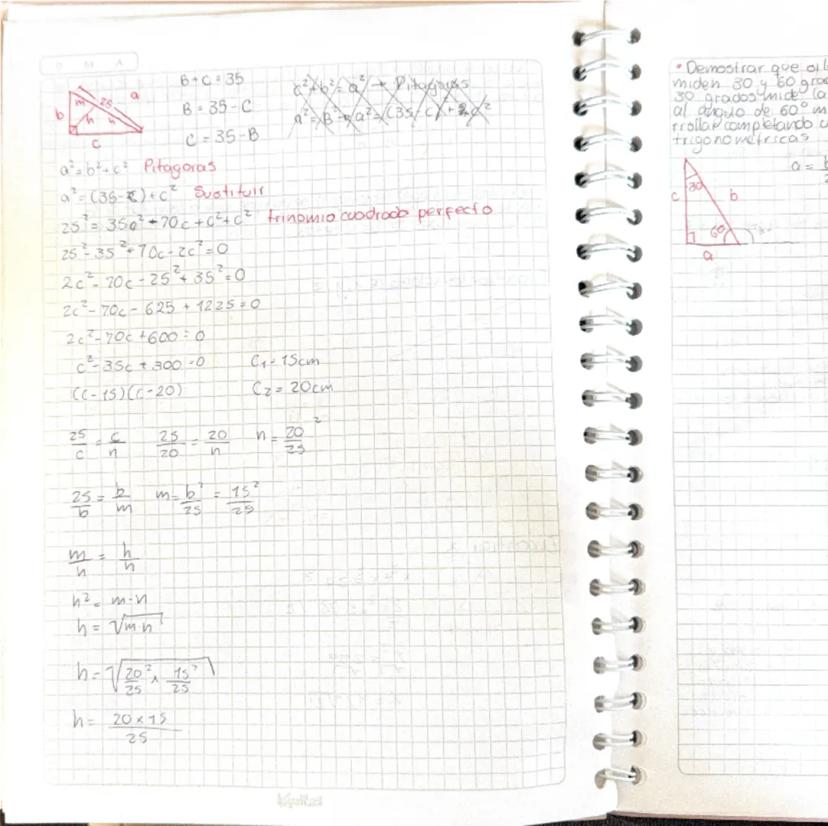 D M A
B + C = 35
B = 35 - C
C = 35 - B
c² + b² = a² → Pitagoras
b
m
25
a
h
n
c
a² = b² + c² Pitagoras
a² = (35 - c) + c² Sustituir
25² = 35a² + 70c + c² + c² trinomio cuadrado perfecto
25² - 35² + 70c - 2c² = 0
2c² - 70c - 25² + 35² = 0
2c² - 70c - 625 + 1225 = 0
2c² - 70c + 600 = 0
c² - 35c + 300 = 0 C₁ = 15cm
(c - 15)(c - 20) C₂ = 20cm
25/c = c/n 25/20 = 20/n n = 20²/25
25/b = b/m m = b²/25 = 15²/25
m/h = h/n
h² = m·n
h = √m·n
h = √20²/25 × 15²/25
h = 20 × 15/25
• Demostrar que
miden 30 y 60
30 grados mide
al ángulo de 60°
completando
trigonometricas
a =
30
c
b
60
a